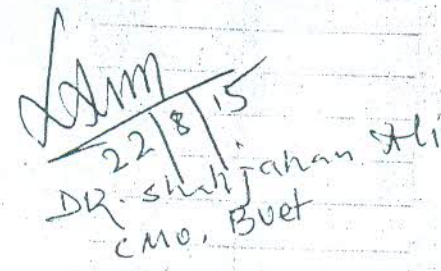 22/8/15
DR. Shahjahan Ali
CMO, Buet